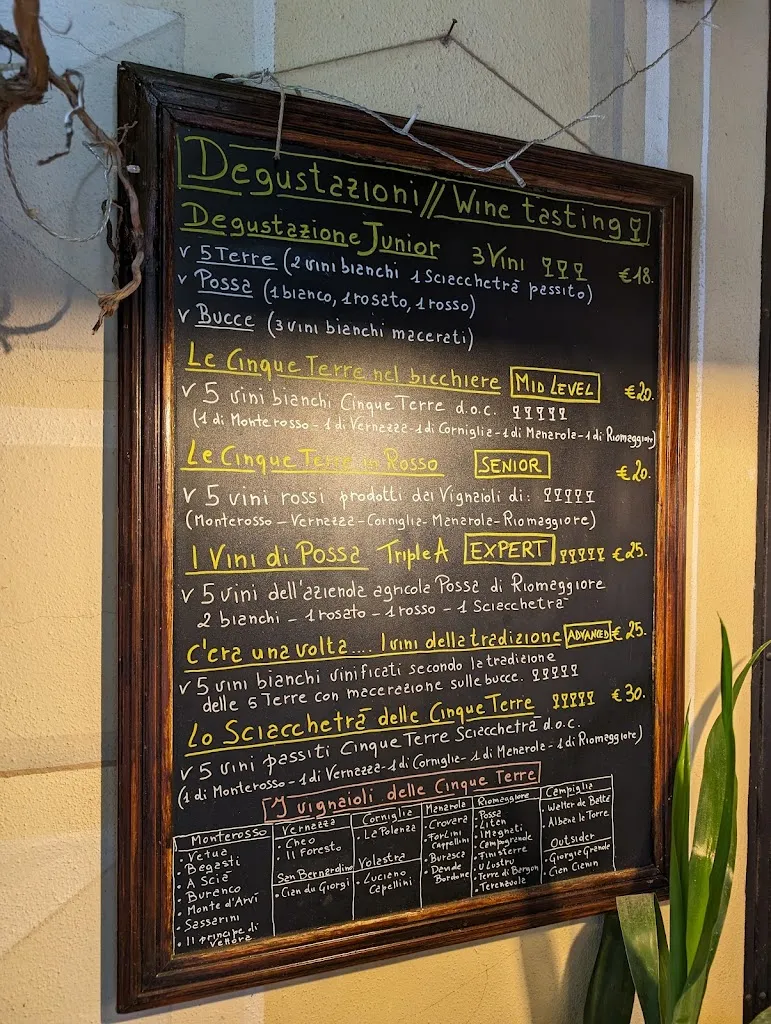 Degustazioni // Wine tasting
Degustazione Junior 3 Vini €18.
v 5 Terre (2 vini bianchi 1 Sciacchetrà passito)
v Possa (1 bianco, 1 rosato, 1 rosso)
v Bucce (3 vini bianchi macerati)
Le Cinque Terre nel bicchiere MID LEVEL €20.
v 5 vini bianchi Cinque Terre d.o.c.
(1 di Monterosso - 1 di Vernazza - 1 di Corniglia - 1 di Manarola - 1 di Riomaggiore)
Le Cinque Terre in Rosso SENIOR €20.
v 5 vini rossi prodotti dai Vignaioli di:
(Monterosso - Vernazza - Corniglia - Manarola - Riomaggiore)
I Vini di Possa Triple A EXPERT €25.
v 5 vini dell'azienda agricola Possa di Riomaggiore
2 bianchi - 1 rosato - 1 rosso - 1 Sciacchetrà
C'era una volta.... I vini della tradizione ADVANCED €25.
v 5 vini bianchi vinificati secondo la tradizione
delle 5 Terre con macerazione sulle bucce.
Lo Sciacchetrà delle Cinque Terre €30.
v 5 vini passiti Cinque Terre Sciacchetrà d.o.c.
(1 di Monterosso - 1 di Vernazza - 1 di Corniglia - 1 di Manarola - 1 di Riomaggiore)
I vignaioli delle Cinque Terre
Monterosso
• Vetua
• Begasti
• A Scià
• Buranco
• Monte d'Arvi
• Sassarini
• Il principe di
Vernazza
• Cheo
• Il Foresto
San Bernardino
• Cian du Giorgi
Corniglia
• La Polenza
Volastra
• Luciano
Capellini
Manarola
• Crovara
• Forlini
Cappellini
• Burasca
• Davide
Bordone
Riomaggiore
• Possa
• Litan
• I Magnati
• Campogrande
• Finisterre
• U Lustru
• Terre di Bargon
• Terenzuola
Campiglia
• Walter de Battè
• Albana la Torre
Outsider
• Giorgia Grande
• Cian Cianin